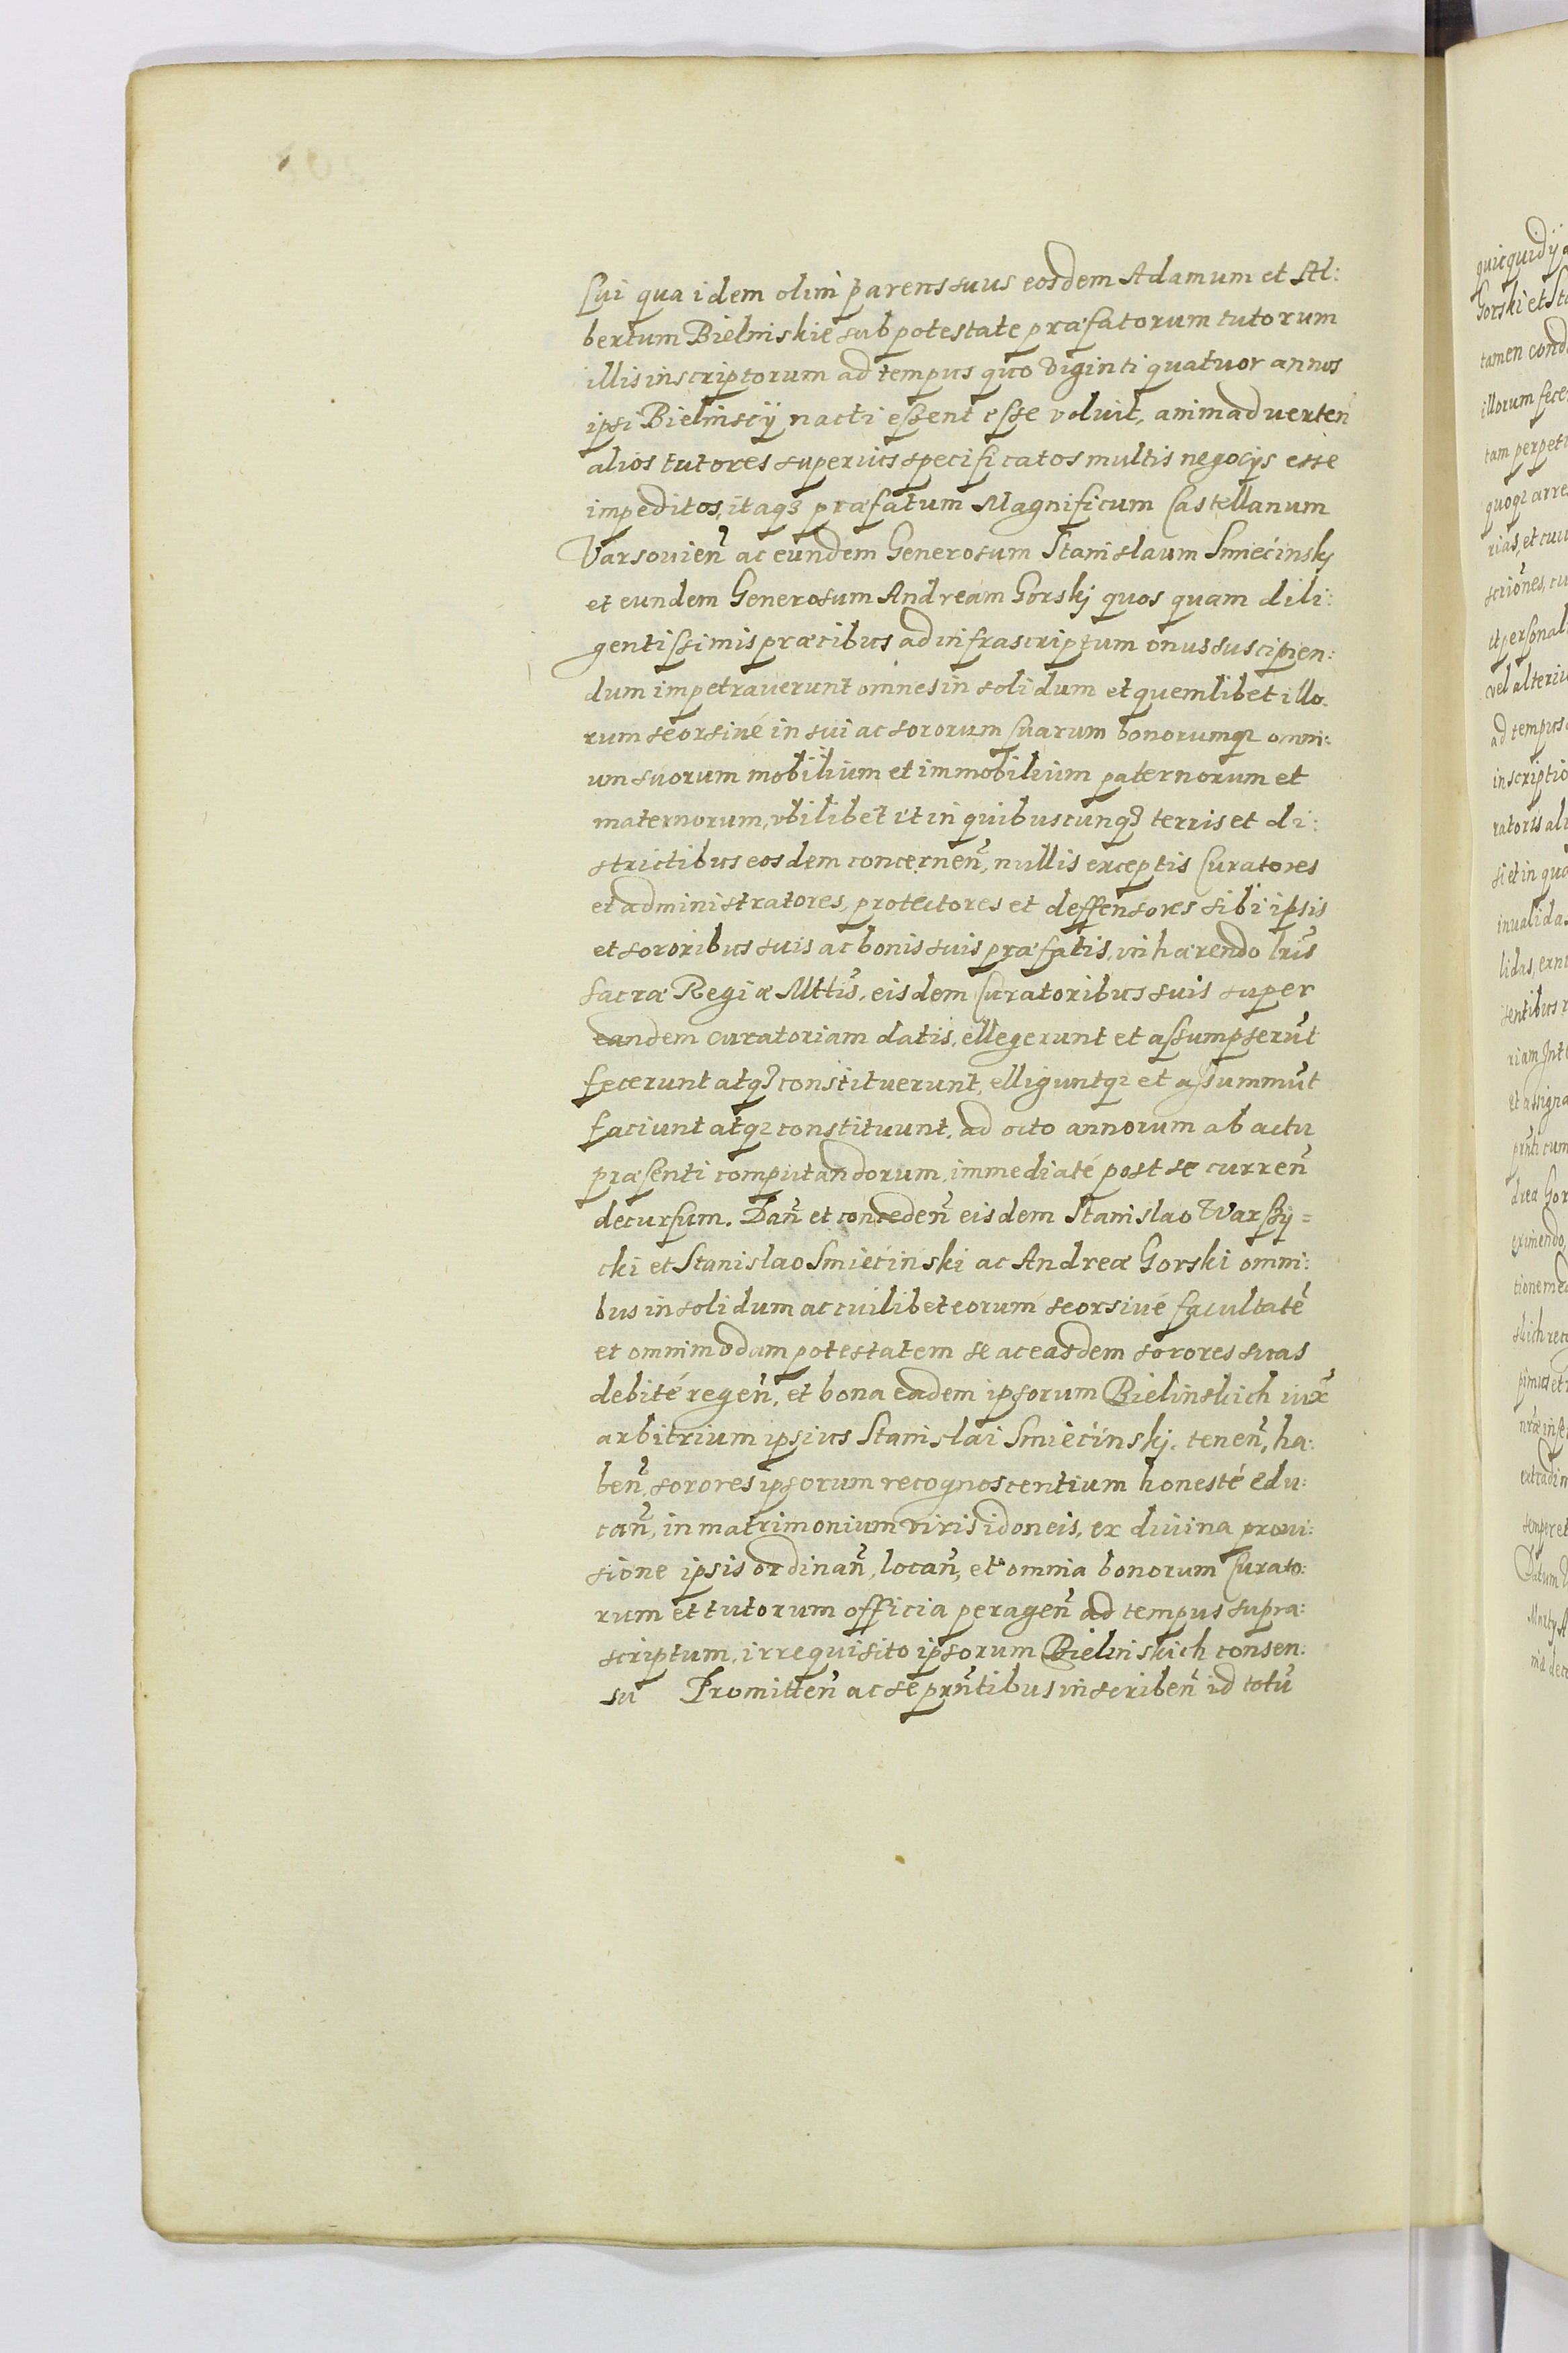 sui qua idem olim parens suus eosdem Adamum et Al:
bertum Bielinskie sub potestate præfatorum tutorum
illis inscriptorum ad tempus quo viginti quatuor annos
ipsi Bielinscij nacti essent esse voluit, animaduerteñ
alios tutores superius specificatos multis negocijs esse
impeditos, itaqȝ præfatum Magnificum Castellanum
Varsouieñ ac eundem Generosum Stanislaum Smiecinskj
et eundem Generosum Andream Gorskj quos quam dili:
gentissimis præcibus ad infrascriptum onus suscipien:
dum impetrauerunt omnes in solidum et quemlibet illo:
rum seorsiué in sui ac sororum suarum bonorumqȝ omni:
um suorum mobilium et immobilium paternorum et
maternorum, vbilibet et in quibuscunqȝ terris et di:
strictibus eosdem concerneñ, nullis exceptis Curatores
et administratores, protectores et deffensores sibi ipsis
et sororibus suis ac bonis suis præfatis, inhærendo lris̃
sacræ Regiæ Mttis̃, eisdem Curatoribus suis super
eandem curatoriam datis, ellegerunt et assumpserũt
fecerunt atqȝ constituerunt, elliguntqȝ et assummũt
faciunt atqȝ constituunt, ad octo annorum ab actu
præsenti computandorum, immediaté post se curreñ
decursum. Dañ et concedeñ eisdem Stanislao Warssij=
cki et Stanislao Smiecinski ac Andreæ Gorski omni:
bus in solidum ac cuilibet eorum seorsiué facultatẽ
et omnimodam potestatem se ac easdem sorores suas
debité regeñ, et bona eadem ipsorum Bielinskich iux̃
arbitrium ipsius Stanislai Smiecinskj, teneñ, ha:
beñ, sorores ipsorum recognoscentium honesté edu:
cañ, in matrimonium viris idoneis, ex diuina proui:
sione ipsis ordinañ, locañ, et omnia bonorum Curato:
rum et tutorum officia perageñ ad tempus supra:
scriptum, irrequisito ipsorum Bielinskich consen:
su Promitteñ ac se prñtibus inscribeñ id totũ
quicquid ij
Gorski et
tamen
illorum
tam
quoqȝ
et
vel
ad tempus